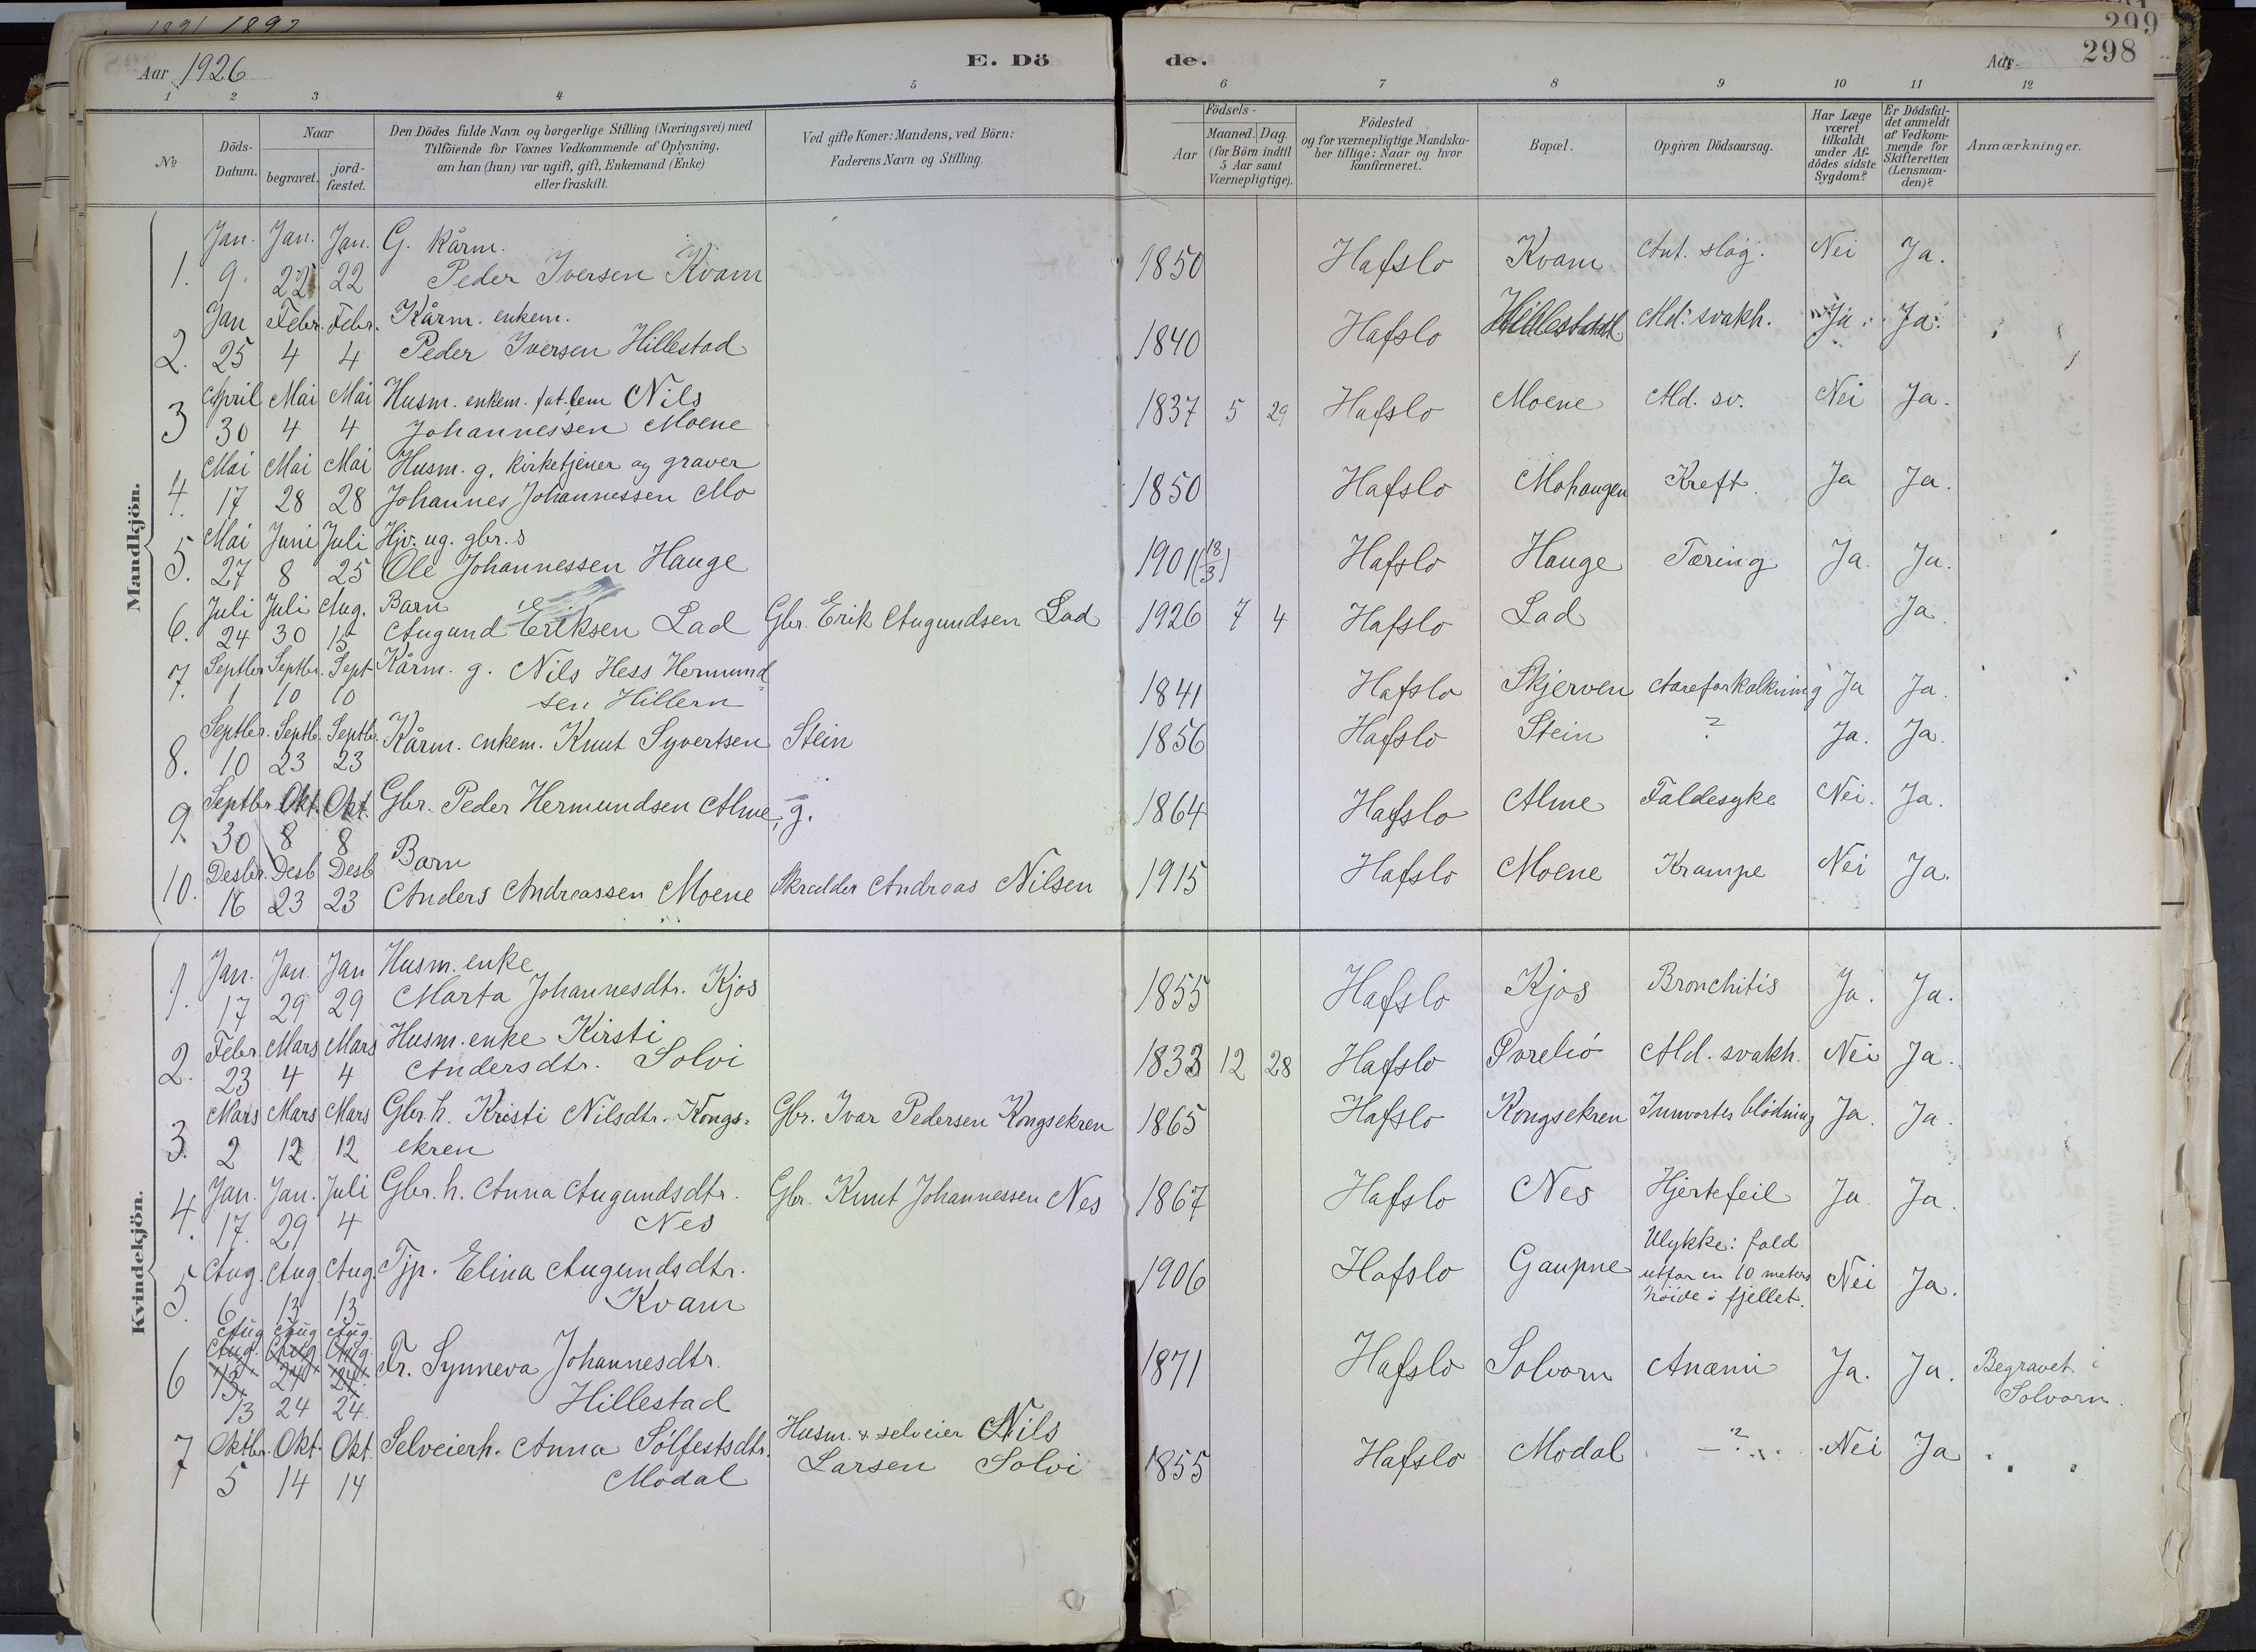 1891 1892
299
298
Aar 1926
E. Dö
de.
Aar
1 2 3 4 5 6 7 8 9 10 11 12
No
Döds-Datum.
Naar
begravet.
jord-fæstet.
Den Dödes fulde Navn og borgerlige Stilling (Næringsvei) med
Tilföiende for Voxnes Vedkommende af Oplysning,
om han (hun) var ugift, gift, Enkemand (Enke)
eller fraskilt.
Ved gifte Koner: Mandens, ved Börn:
Faderens Navn og Stilling.
Födsels-
Aar
Maaned. Dag.
(for Börn indtil
5 Aar samt
Værnepligtige).
Födested
og for værnepligtige Mandska-
ber tillige: Naar og hvor
konfirmeret.
Bopæl.
Opgiven Dödsaarsag.
Har Læge
været
tilkaldt
under Af-
dödes sidste
Sygdom?
Er Dödsfal-
det anmeldt
af Vedkom-
mende for
Skifteretten
(Lensman-
den)?
Anmærkninger.
Mandkjön.
Jan. Jan. Jan. G. Kårm.
1. 9. 22 22 Peder Iversen Kvam 1850 Hafslo Kvam Ant. slag. Nei Ja.
Jan Febr. Febr. Kårm. enkem.
2. 25 4 4 Peder Iversen Hillestad 1840 Hafslo Hillestad Ald. svakh. Ja. Ja.
April Mai Mai Husm. enkem. fat.lem Nils
3 30 4 4 Johannessen Moene 1837 5 29 Hafslo Moene Ald. sv. Nei Ja.
Mai Mai Mai Husm. g. kirketjener og graver
4. 17 28 28 Johannes Johannessen Mo 1850 Hafslo Mohaugen Kreft. Ja Ja.
Mai Juni Juli Hjv. ug. gbr. s
5. 27 8 25 Ole Johannessen Hauge 1901 (18/3) Hafslo Hauge Tæring Ja. Ja.
Juli Juli Aug. Barn
6. 24 30 15 Augund Eriksen Lad Gbr. Erik Augundsen Lad 1926 7 4 Hafslo Lad Ja.
Septbr Septbr. Sept Kårm. g. Nils Hess Hermund
7. 1 10 10 sen Hillern 1841 Hafslo Skjerven Aareforkalkning Ja Ja.
Septbr. Septb. Septbr. Kårm. enkem. Knut Syvertsen Stein
8. 10 23 23 1856 Hafslo Stein ? Ja. Ja.
Septbr Okt. Okt. Gbr. Peder Hermundsen Alme, g.
9. 30 8 8 1864 Hafslo Alme Faldesyke Nei. Ja.
Desbr. Desb Desb Barn
10. 16 23 23 Anders Andreassen Moene Skrædder Andreas Nilsen 1915 Hafslo Moene Krampe Nei Ja.
Kvindekjön.
Jan. Jan. Jan Husm. enke
1. 17 29 29 Marta Johannesdtr. Kjos 1855 Hafslo Kjos Bronchitis Ja. Ja.
Febr. Mars Mars Husm. enke Kirsti
2. 23 4 4 Andersdtr. Solvi 1833 12 28 Hafslo Ald. svakh. Nei Ja.
Mars Mars Mars Gbr. h. Kristi Nilsdtr. Kongs- Gbr. Ivar Pedersen Kongsekren
3. 2 12 12 ekren 1865 Hafslo Kongsekren Innvortes blödning Ja. Ja.
Jan. Jan. Juli Gbr. h. Anna Augundsdtr. Gbr. Knut Johannessen Nes
4. 17. 29 4 Nes 1867 Hafslo Nes Hjertefeil Ja. Ja.
Aug. Aug. Aug. Tjp. Elina Augundsdtr.
5. 6 13 13 Kvam 1906 Hafslo Gaupne Ulykke: fald
utfor en 10 meters
höide i fjellet. Nei Ja.
Aug Aug Aug.
Aug. Aug Aug.
13 24 24
6 Fr. Synneva Johannesdtr.
13 24 24. Hillestad 1871 Hafslo Solvorn Anæmi Ja. Ja. Begravet i
Solvorn.
Oktbr. Okt. Okt. Selveierh. Anna Sölfestsdtr. Husm. & selveier Nils
7 5 14 14 Modal Larsen Solvi 1855 Hafslo Modal - ? Nei Ja